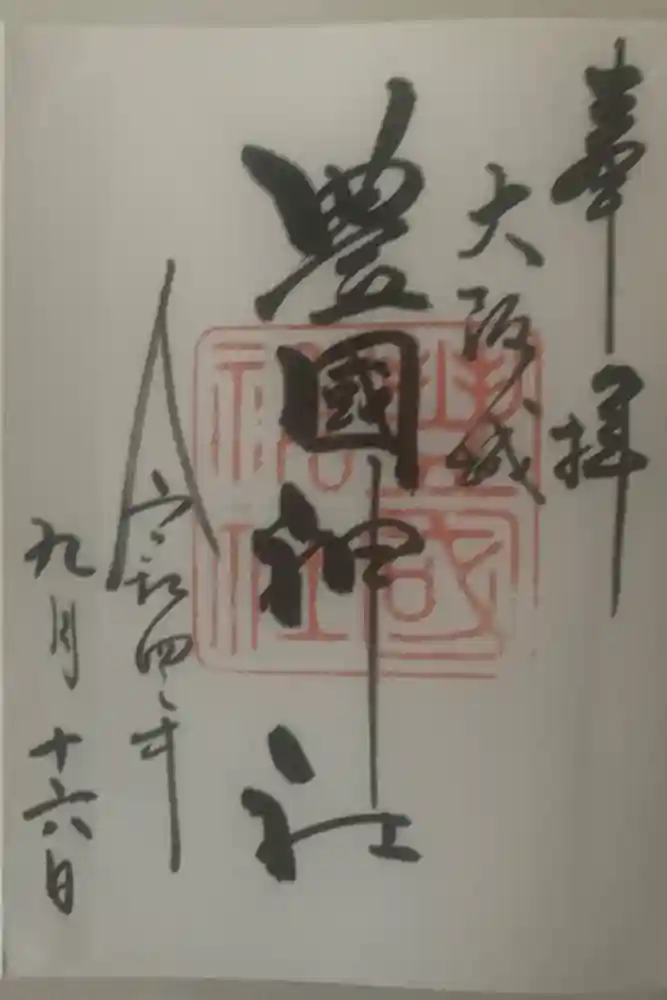 奉拝
大阪城
豊國神社
令和四年
九月十六日
豊國
神社